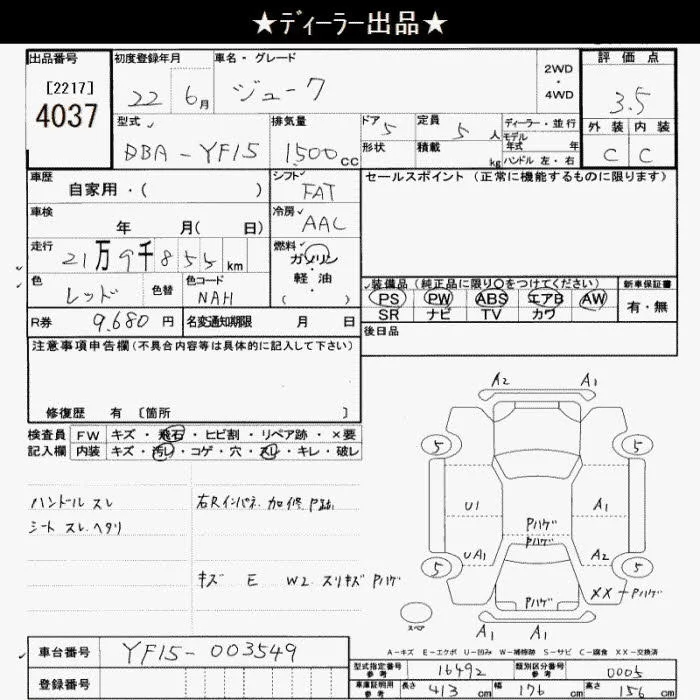 ★ディーラー出品★
出品番号
[2217]
4037
初度登録年月
22 6月
車名・グレード
ジューク
2WD
・
4WD
評価点
3.5
外装 内装
C C
型式
DBA-YF15
排気量
1500cc
ドア 5
形状
定員 5人
積載 kg
ディーラー・並行
モデル
年式 年
ハンドル 左・右
車歴
自家用・( )
シフト
FAT
セールスポイント(正常に機能するものに限ります)
車検
年 月( 日)
冷房
AAC
走行
21万9千855km
燃料
ガソリン
軽油
( )
色
レッド
色替
色コード
NAH
装備品(純正品に限り○をつけてください)
PS PW ABS エアB AW
SR ナビ TV カワ
新車保証書
有・無
R券 9,680円
名変通知期限 月 日
後日品
注意事項申告欄(不具合内容等は具体的に記入して下さい)
修復歴 有 [箇所 ]
検査員
記入欄
FW キズ・飛石・ヒビ割・リペア跡・×要
内装 キズ・汚レ・コゲ・穴・スレ・キレ・破レ
ハンドル スレ
シート スレ ヘタリ
右Rインパネ 加修 P跡
キズ E W2 スリキズ Pハゲ
A2 A1
5 5
U1 A1
Pハゲ
Pハゲ
UA1 A2
5 5
Pハゲ XX-Pハゲ
スペア
A1 A1
A-キズ E-エクボ U-凹み W-補修跡 S-サビ C-腐食 XX-交換済
車台番号 YF15-003549
登録番号
型式指定番号
参考
16492
類別区分番号
参考
0005
車庫証明用
参考
長さ 413cm 幅 176cm 高さ 156cm